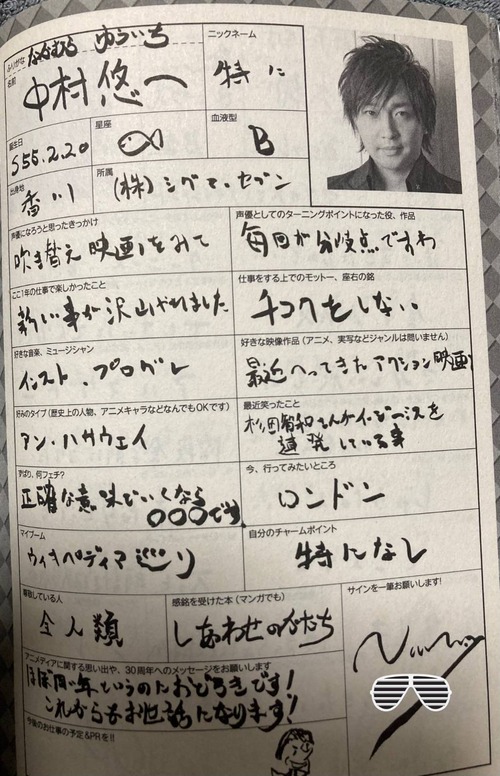 ふりがな なかむら ゆういち
名前
中村 悠一
ニックネーム
特に
誕生日
S55.2.20
星座
血液型
B
出身地
香川
所属
(株)シグマ・セブン
声優になろうと思ったきっかけ
吹き替え映画をみて
声優としてのターニングポイントになった役、作品
毎回が分岐点ですわ
ここ1年の仕事で楽しかったこと
新しい事が沢山やれました
仕事をする上でのモットー、座右の銘
チコクをしない
好きな音楽、ミュージシャン
インスト、プログレ
好きな映像作品(アニメ、実写などジャンルは問いません)
最近へってきたアクション映画
好みのタイプ(歴史上の人物、アニメキャラなどなんでもOKです)
アン・ハサウェイ
最近笑ったこと
杉田智和さんが
連発している事
ずばり、何フェチ?
正確な意味でいくなら
〇〇〇です
今、行ってみたいところ
ロンドン
マイブーム
ウィキペディア巡り
自分のチャームポイント
特になし
尊敬している人
全人類
感銘を受けた本(マンガでも)
しあわせのかたち
サインを一筆お願いします!
アニメディアに関する思い出や、30周年へのメッセージをお願いします
ほぼ同い年というのにおどろきです!
これからもお世話になります!
今後のお仕事の予定&PRを!!